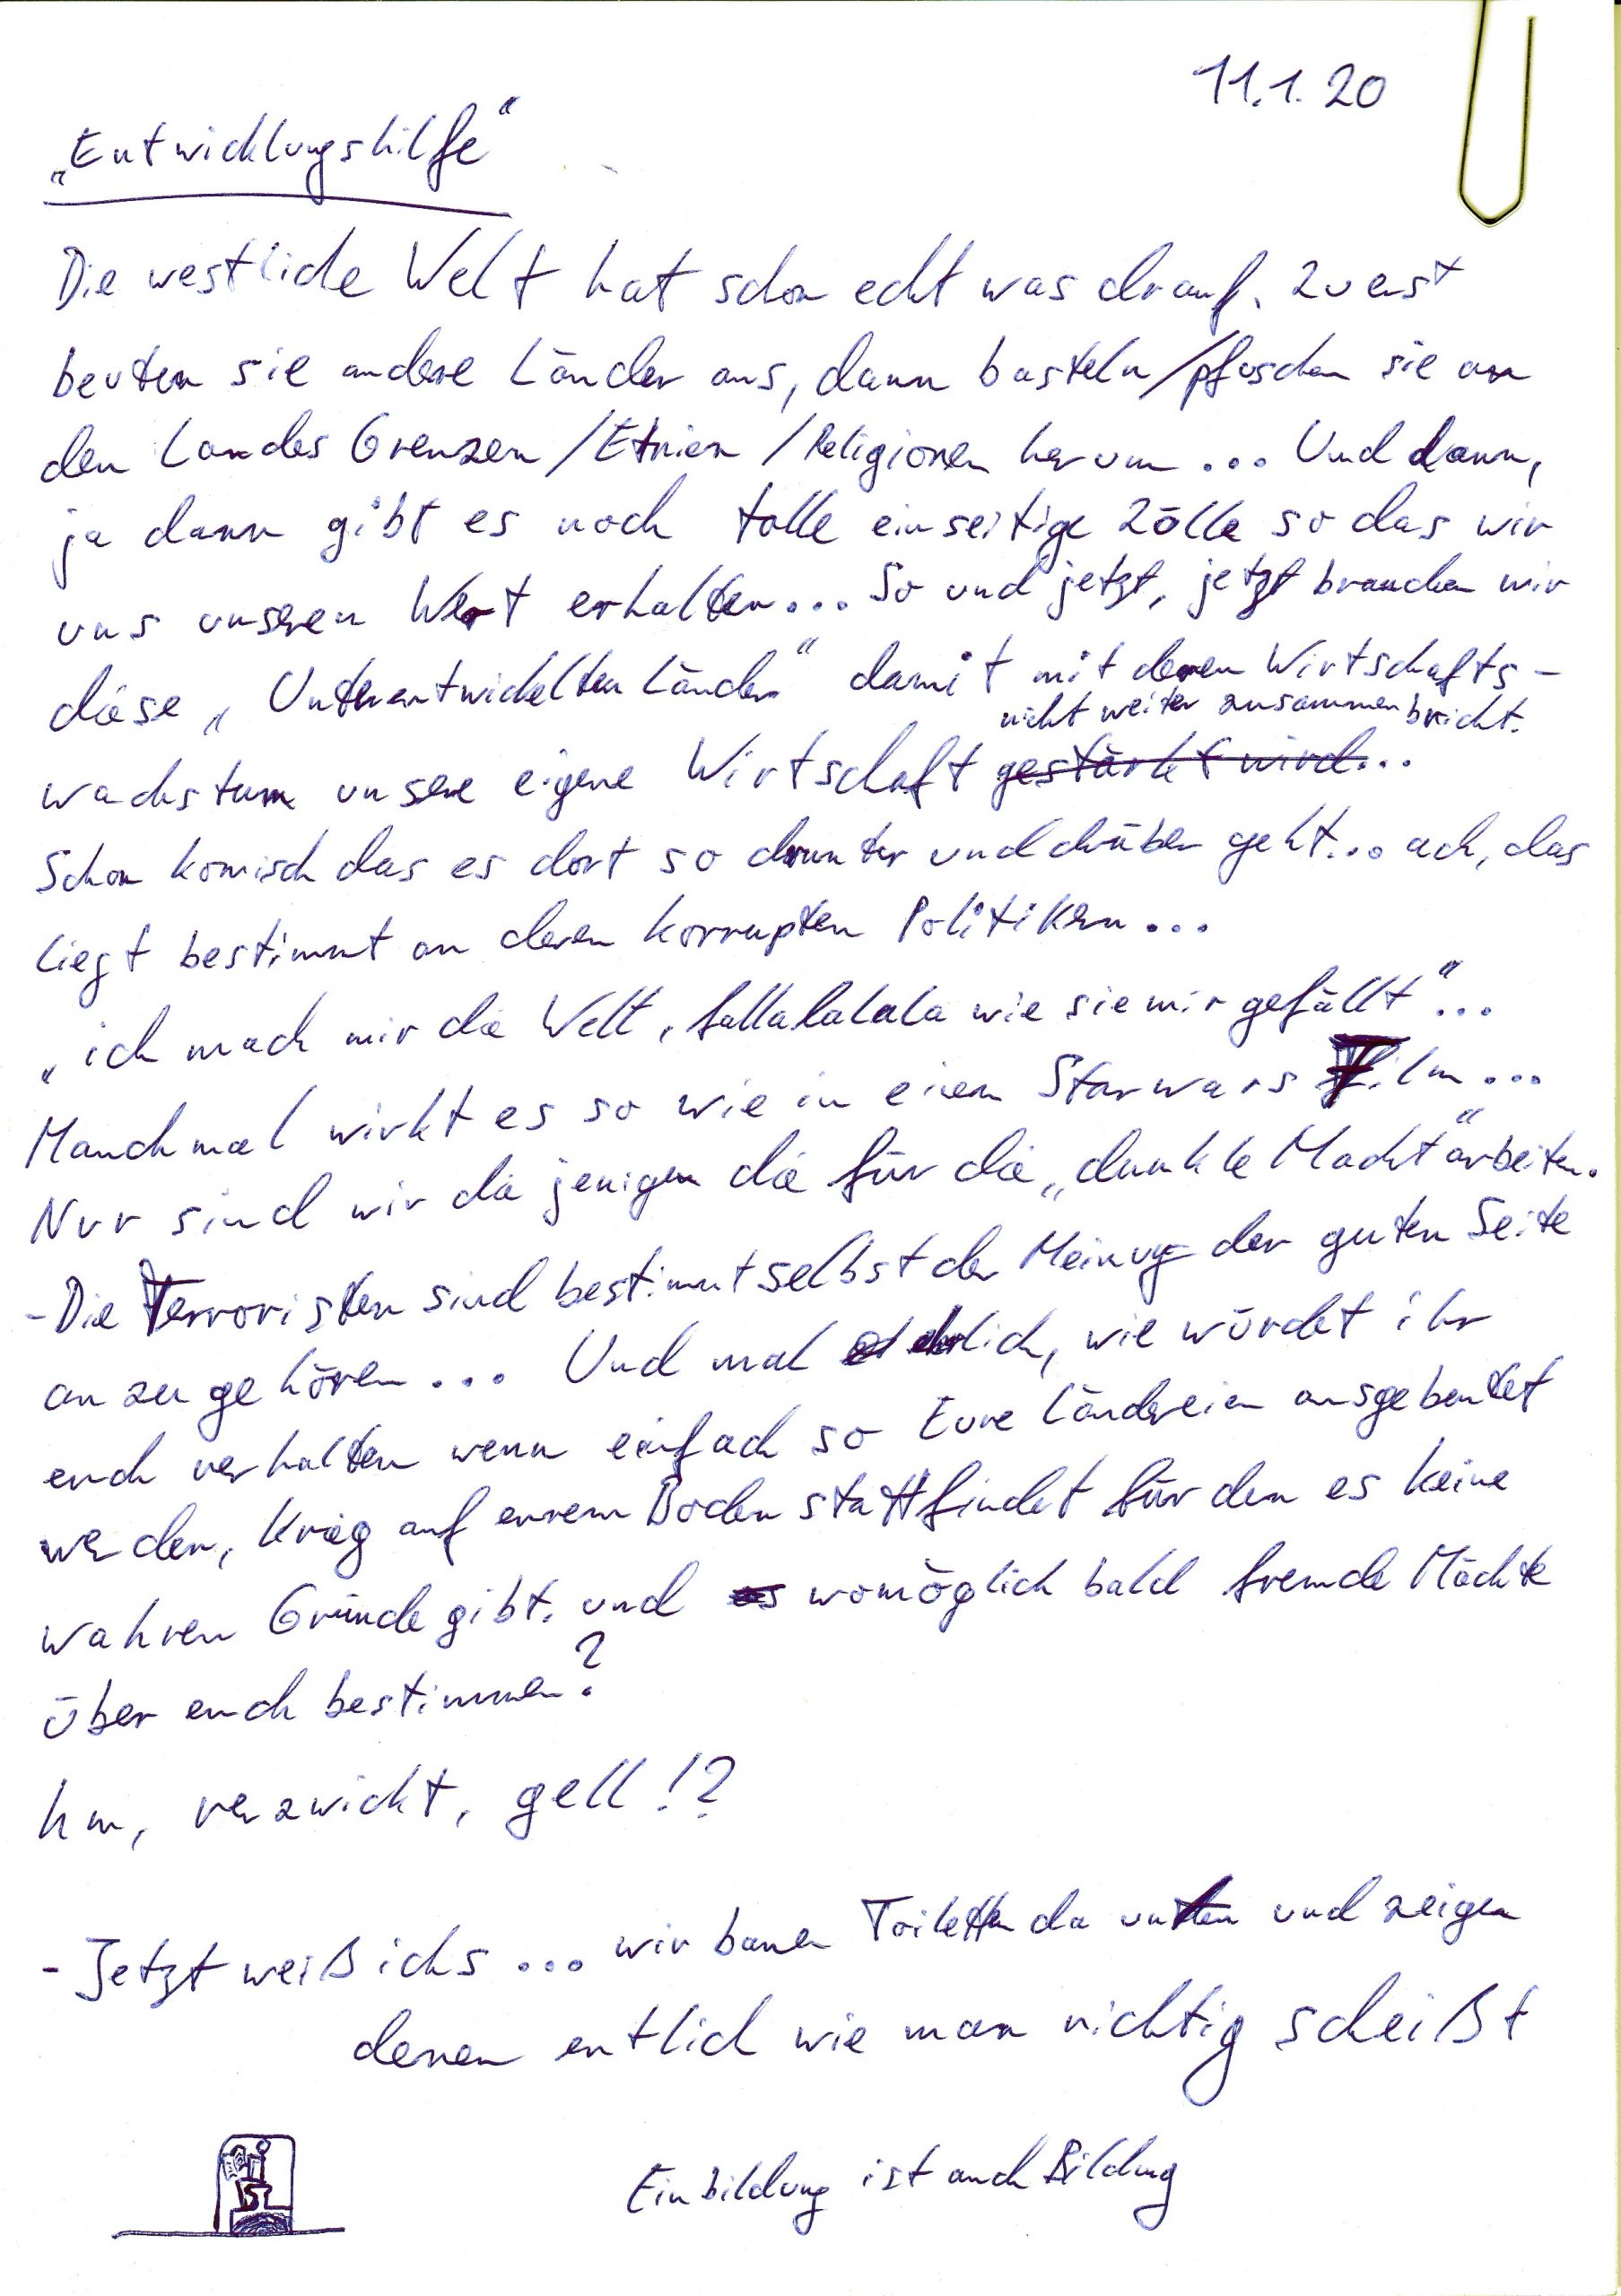 11.1.20
„Entwicklungshilfe“
Die westliche Welt hat schon echt was drauf. Zuerst
beuten sie andere Länder aus, dann basteln/pfuschen sie an
den Landes Grenzen/Etnien/Religionen herum... Und dann,
ja dann gibt es noch tolle einseitige Zölle so das wir
uns unseren Wert erhalten... So und jetzt, jetzt brauchen wir
diese „Unterentwickelten Länder“ damit mit deren Wirtschafts-
nicht weiter zusammenbricht.
wachstum unsere eigene Wirtschaft gestärkt wird...
Schon komisch das es dort so drunter und drüber geht... ach, das
liegt bestimmt an deren korrupten Politikern...
„ich mach mir die Welt, fallalalala wie sie mir gefällt“...
Manchmal wirkt es so wie in einem Starwars Film...
Nur sind wir die jenigen die für die „dunkle Macht“ arbeiten.
-Die Terroristen sind bestimmt selbst der Meinung der guten Seite
an zu gehören... Und mal ehrlich, wie würdet ihr
euch verhalten wenn einfach so Eure Ländereien ausgebeutet
werden, Krieg auf eurem Boden stattfindet für den es keine
wahren Gründe gibt. und womöglich bald fremde Mächte
über euch bestimmen?
hm, verzwickt, gell!?
- Jetzt weiß ichs... wir bauen Toiletten da unten und zeigen
denen entlich wie man richtig scheißt
Einbildung ist auch Bildung